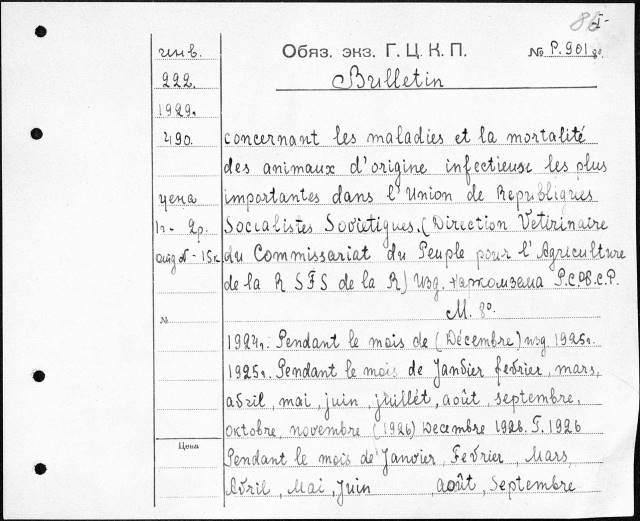 86 I-
Обяз. экз. Г. Ц. К. П.
№ P. 901 80.
Bulletin
инв.
222.
1929г.
490.
concernant les maladies et la mortalité
des animaux d'origine infectieuse les plus
importantes dans l'Union de Republiques
Socialistes Sovietiques. (Direction Veterinaire
du Commissariat du Peuple pour l'Agriculture
de la R SFS de la R) Изд. Наркомзема Р.С.Ф.С.Р.
М. 8°.
цена
1г - 2р.
отд № - 15к
№
1924г. Pendant le mois de (Décembre) изд 1925г.
1925г. Pendant le mois de Janvier fevrier, mars,
avril, mai, juin, juillet, août, septembre,
oktobre, novembre (1926) Decembre 1926. Г. 1926
Цена
Pendant le mois de Janvier, Fevrier, Mars,
Avril, Mai, Juin août, Septembre